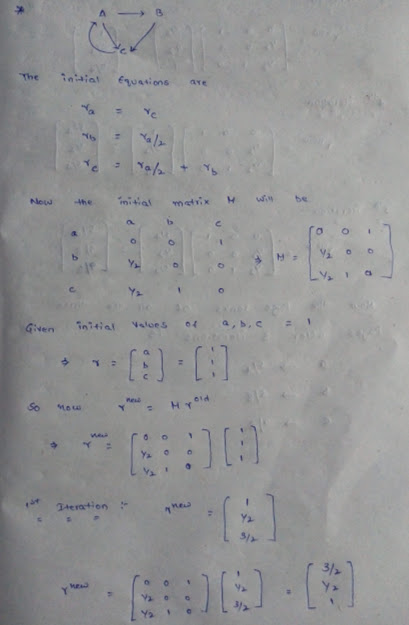 *
A → B
C
The initial Equations are
ra = rc
rb = ra/2
rc = ra/2 + rb
Now the initial matrix M will be
a b c
a 0 0 1
b 1/2 0 0 ⇒ M = [0 0 1; 1/2 0 0; 1/2 1 0]
c 1/2 1 0
Given initial values of a, b, c = 1
⇒ r = [a; b; c] = [1; 1; 1]
So now r^new = M r^old
⇒ r^new = [0 0 1; 1/2 0 0; 1/2 1 0] [1; 1; 1]
1st Iteration :- r^new = [1; 1/2; 3/2]
= = =
r^new = [0 0 1; 1/2 0 0; 1/2 1 0] [1; 1/2; 3/2] = [3/2; 1/2; 1]